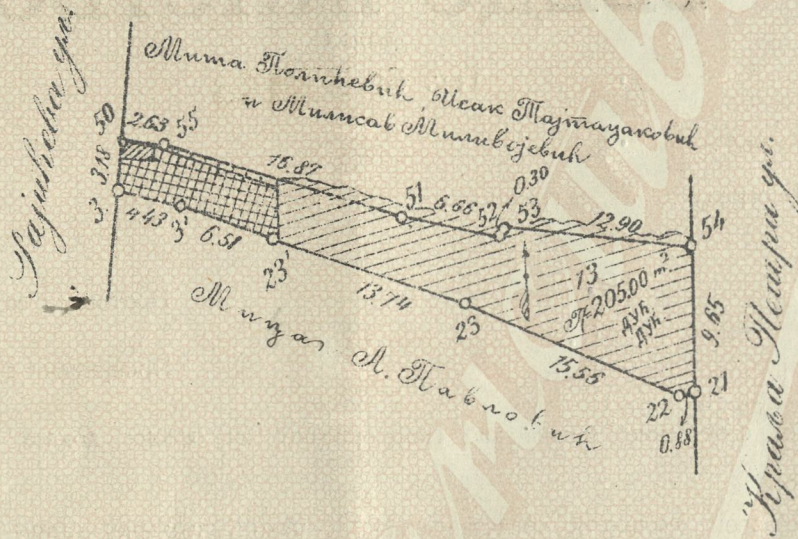 Рајићева ул.
Мита Полићевић, Исак Тајтацаковић
и Милисав Миливојевић
50
2.63
55
3.18
16.87
3
4.43
3'
6.51
23'
51
6.66
52
0.30
53
12.90
54
13
П=205.00 m²
ДУЋ.
ДУЋ.
9.65
13.74
23
15.55
22
21
0.88
Мица А. Павловић
Краља Петра ул.